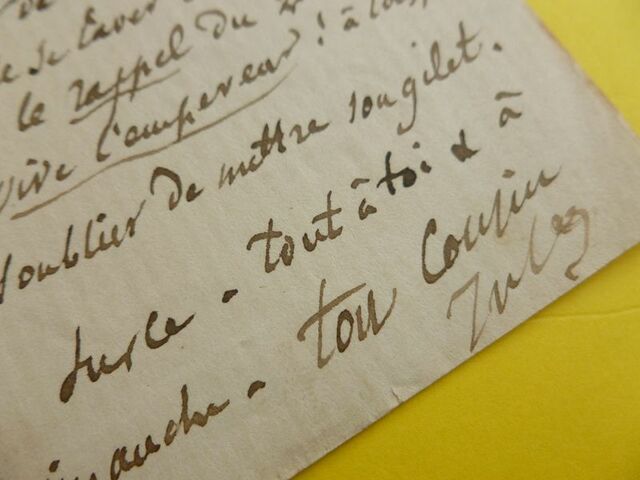 de
se laver
le rappel du
vive l'empereur! à
d'oublier de mettre son gilet.
Surce - tout à toi & à
dimanche - ton Cousin
Jules